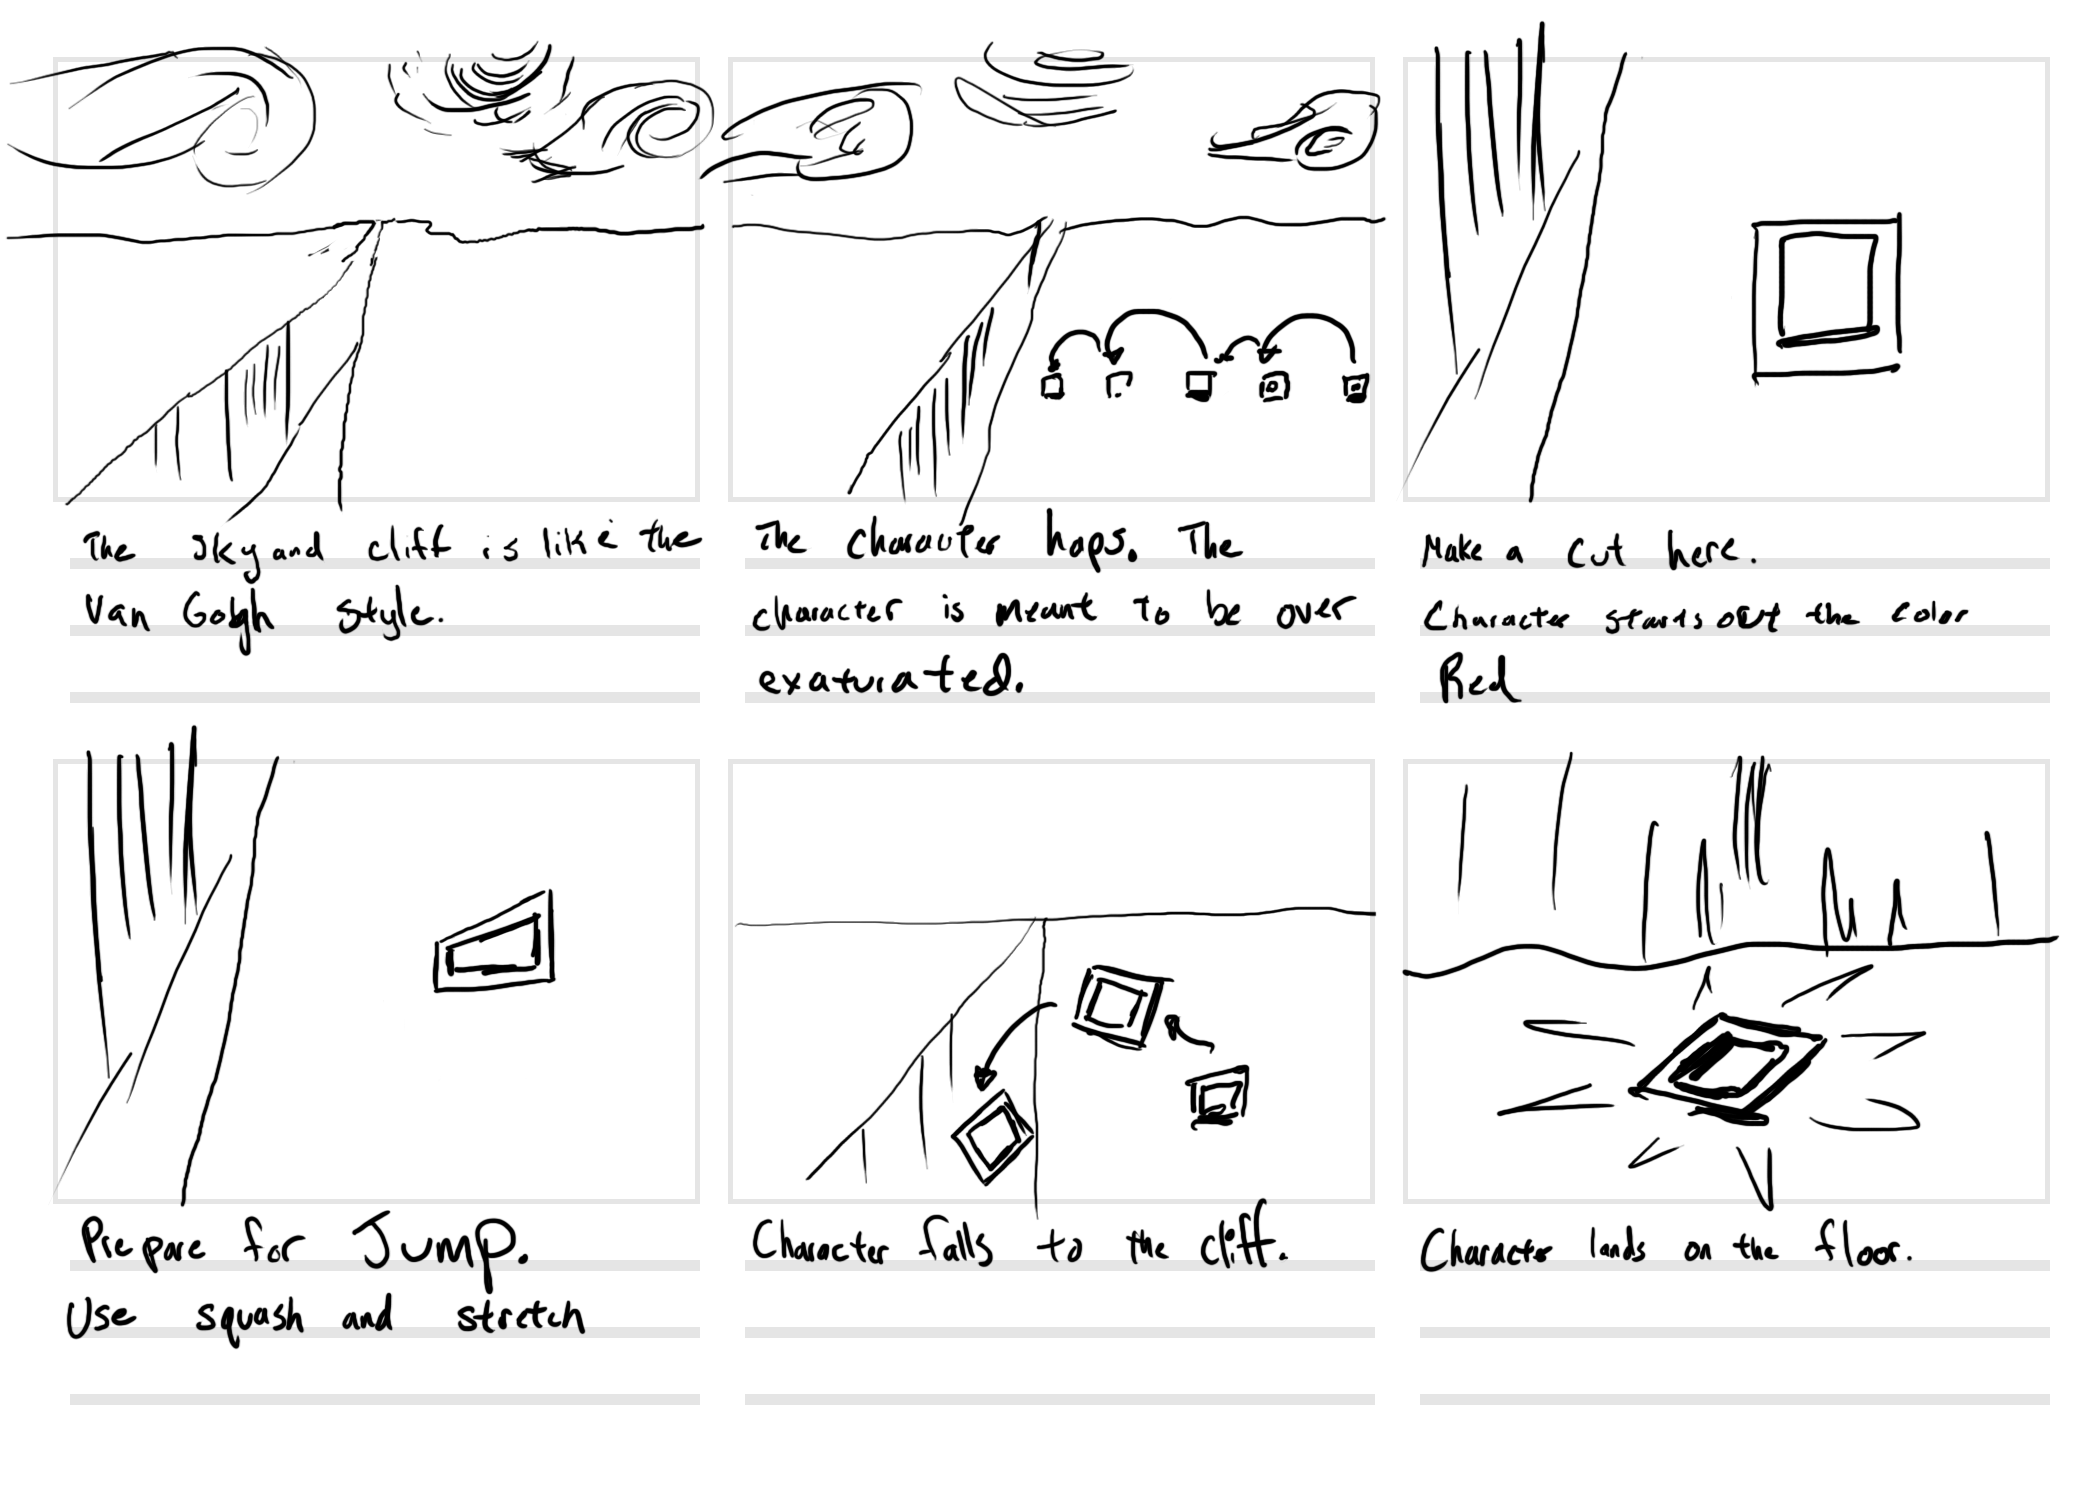 The sky and cliff is like the
Van Gogh style.
The character hops. The
character is meant to be over
exaturated.
Make a cut here.
Character starts out the color
Red
Prepare for Jump.
Use squash and stretch
Character falls to the cliff.
Character lands on the floor.